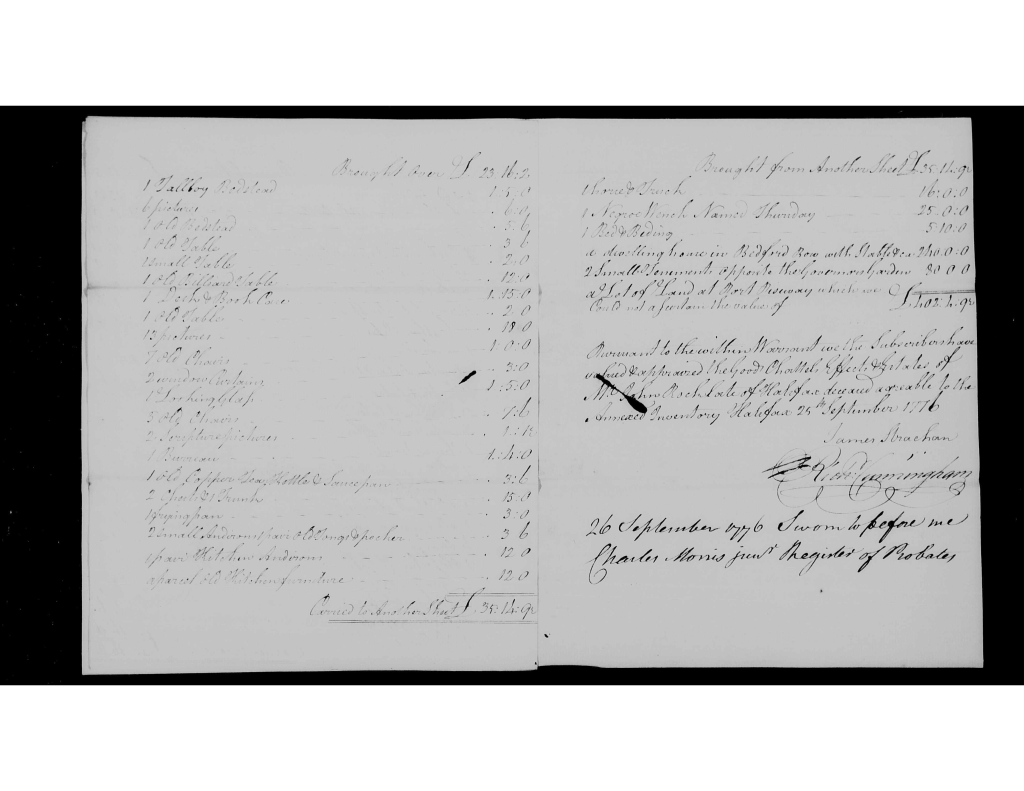 Brought over £ 23:14:2
1 Tallboy Bedstead 1:5:0
6 pictures 6:0
1 Old Bedstead 5:6
1 Old Table 3 6
1 Small Table 2:0
1 Old Billiard Table 12:0
1 Desk & Book Case 1:15:0
1 Old Table 2 0
13 pictures 18 0
7 Old Chairs 1:0:0
2 window Curtains 3:0
1 Looking Glass 1:5:0
3 Old Chairs 7:6
2 Scripture pictures
1 Bureau 1:4:0
1 Old Copper Tea Kettle & Saucepan 3:6
2 & 1 Trunk 15:0
1 frying pan 3:0
2 Small Andirons 1 pair Old Tongs & pocker 3 6
1 pair Kitchen Andirons 12 0
a parcel Old Kitchen furniture 12 0
Carried to Another Sheet £ 35:14:9½
Brought from Another Sheet £ 35:14:9½
1 & Truck 16:0:0
1 Negroe Wench Named Thursday 25:0:0
1 Bed & Beding 5:10:0
a dwelling house in Bedford Row with Stable &ca 240:0:0
2 Small Tenements opposite the Governors Garden 80 0 0
a Lot of Land at Port which we
Could not ascertain the value of £ 402:4:9½
Pursuant to the within Warrant we the Subscribers have
valued & appraized the Goods Chattels Effects & Estates of
Mr John Rock Late of Halifax deceased agreable to the
Annexed Inventory Halifax 25th September 1776
James Strachan
Cunningham
26 September 1776 Sworn to before me
Charles Morris junr Register of Probates